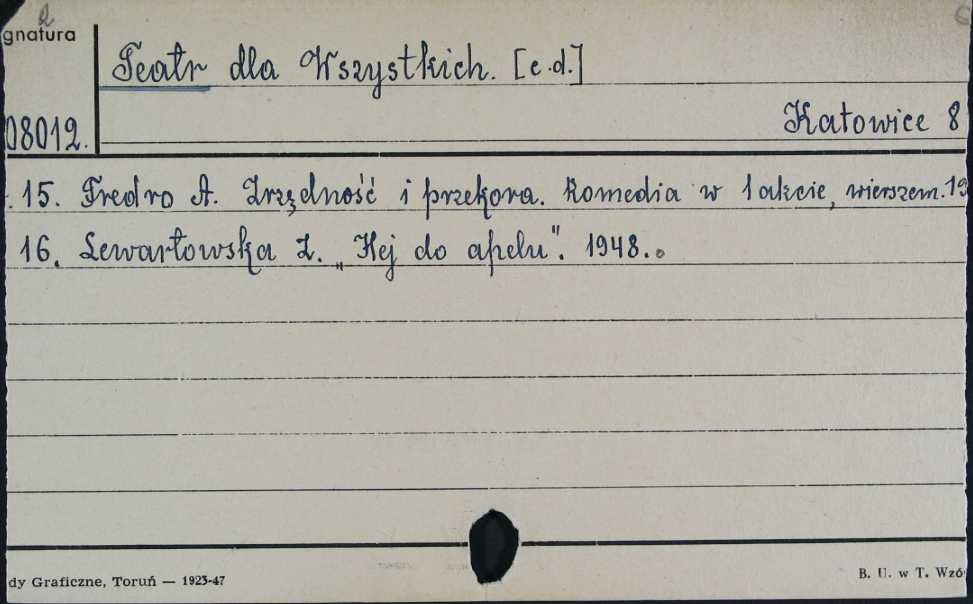 gnatura
Teatr dla Wszystkich. [c.d.]
08012.
Katowice 8
15. Fredro A. Zrzędność i przekora. Komedia w 1 akcie, wierszem. 19
16. Lewartowska Z. „Hej do apelu". 1948.
dy Graficzne, Toruń — 1923-47
B. U. w T. Wzó